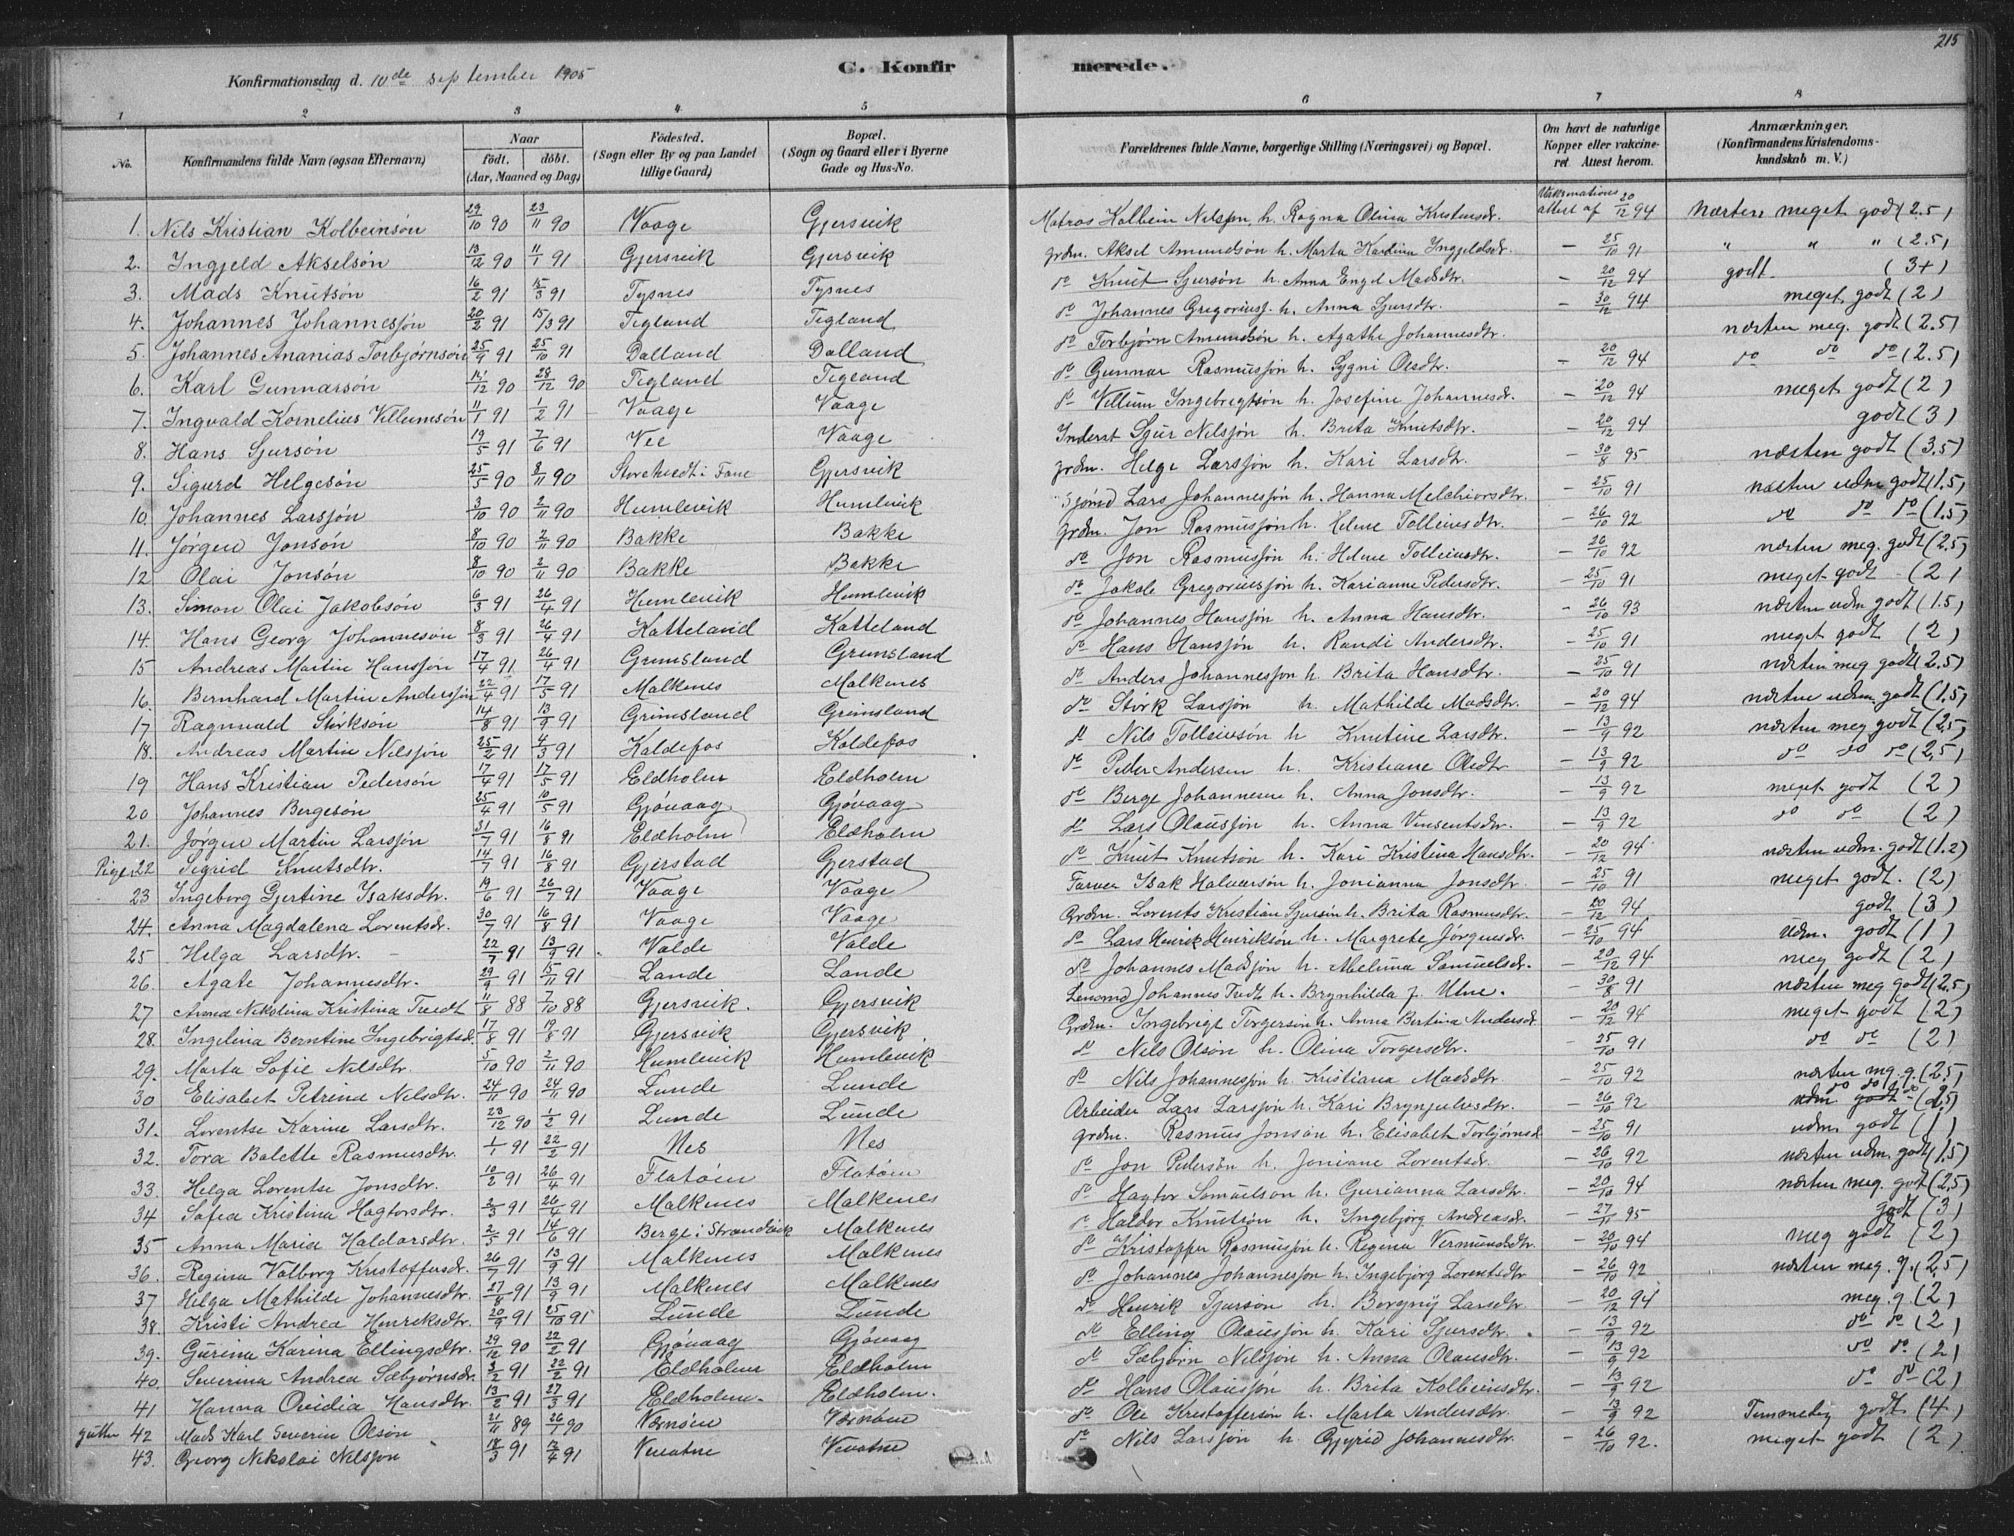 215
Konfirmationsdag d. 10de september 1905
C. Konfirmerede.
1 2 3 4 5 6 7 8
No. Konfirmandens fulde Navn (ogsaa Efternavn) Naar født. døbt. (Aar, Maaned og Dag) Fødested. (Sogn eller By og paa Landet tillige Gaard) Bopæl. (Sogn og Gaard eller i Byerne Gade og Hus-No. Forældrenes fulde Navne, borgerlige Stilling (Næringsvei) og Bopæl. Om havt de naturlige Kopper eller vakcineret. Attest herom. Anmærkninger. (Konfirmandens Kristendomskundskab m. V.)
1. Nils Kristian Kolbeinsøn 29/10 90 23/11 90 Vaage Gjersvik Matros Kolbein Nilssøn h. Ragna Olina Kristensdr. Vaksinations attest af 20/12 94 Næsten meget godt (2.5)
2. Ingjeld Akselsøn 13/12 90 11/1 91 Gjersvik Gjersvik grdm. Aksel Amundsøn h. Marta Karina Ingjeldsdr. – 25/10 91 " " " (2.5)
3. Mads Knutsøn 16/2 91 15/3 91 Tysnes Tysnes do Knut Sjursøn h. Anna Engel Madsdtr. – 20/12 94 godt (3+)
4. Johannes Johannesjøn 20/2 91 15/3 91 Tegland Tegland do Johannes Gregoriusj. h. Anna Sjursdtr. – 30/12 94 meget godt (2)
5. Johannes Ananias Torbjørnsøn 25/9 91 25/10 91 Dalland Dalland do Torbjørn Amundsøn h. Agathe Johannesdtr. næsten meg. godt (2.5)
6. Karl Gunnarsøn 14/12 90 28/12 90 Tegland Tegland do Gunnar Rasmusjøn h. Sygni Olsdtr. – 20/12 94 do do do (2.5)
7. Ingvald Kornelius Villumsøn 11/1 91 1/2 91 Vaage Vaage do Villum Ingebrigtsøn h. Josefine Johannesdr. – 20/12 94 meget godt (2)
8. Hans Sjursøn 19/5 91 7/6 91 Vee Vaage Inderst Sjur Nilsjøn h. Brita Knutsdtr. – 20/12 94 godt (3)
9. Sigurd Helgesøn 25/5 90 8/11 90 Storetvedt i Fane Gjersvik grdm. Helge Larsjøn h. Kari Larsdtr. – 30/8 95 næsten godt (3.5)
10. Johannes Larsjøn 3/10 90 2/11 90 Humlevik Humlevik Lars Johannesjøn h. Hanna Melchiorsdtr. – 25/10 91 næsten udm godt (1.5)
11. Jørgen Jonsøn 8/10 90 2/11 90 Bakke Bakke grdm. Jon Rasmusjøn h. Helene Tolleivsdtr. – 26/10 92 do do do (1.5)
12 Olai Jonsøn 8/10 90 2/11 90 Bakke Bakke do Jon Rasmusjøn h. Helene Tolleivsdtr. – 26/10 92 næsten meg. godt (2.5)
13. Simon Olai Jakobsøn 6/3 91 26/4 91 Humlevik Humlevik do Jakob Gregoriusjøn h. Karianne Pedersdtr. – 25/10 91 meget godt – (2)
14. Hans Georg Johannesøn 8/3 91 26/4 91 Katteland Katteland do Johannes Hansjøn h. Anna Hansdtr. – 26/10 93 næsten udm godt (1.5)
15 Andreas Martin Hansjøn 17/4 91 26/4 91 Grimsland Grimsland do Hans Hansjøn h. Randi Andersdtr. – 25/10 91 meget godt (2)
16. Bernhard Martin Andersjøn 22/4 91 17/5 91 Malkenes Malkenes do Anders Johannesjøn h. Brita Hansdtr. – 25/10 91 næsten meg godt (2.5)
17 Ragnvald Størksøn 14/8 91 13/9 91 Grimsland Grimsland do Størk Larsjøn h. Mathilde Madsdtr. – 20/12 94 næsten udm. godt (1.5)
18. Andreas Martin Nilsjøn 25/2 91 4/3 91 Koldefos Koldefos do Nils Tolleivsøn h Knutine Larsdtr. – 13/9 92 næsten meg godt (2.5)
19 Hans Kristian Pedersøn 17/4 91 17/5 91 Eldholm Eldholm do Peder Andersen h. Kristiane Olsdtr. – 13/9 92 do do do (2.5)
20 Johannes Bergesøn 25/4 91 10/5 91 Gjøvaag Gjøvaag do Berge Johannesen h. Anna Jonsdtr. – 13/9 92 meget godt (2)
21. Jørgen Martin Larsjøn 31/7 91 16/8 91 Eldholm Eldholm do Lars Olausjøn h. Anna Vinsentsdr. – 13/9 92 do do (2)
Piger 22 Sigrid Knutsdtr. 14/7 91 16/8 91 Gjerstad Gjerstad do Knut Knutsøn h. Kari Kristina Hansdtr. – 20/12 94 næsten udm. godt (1.2)
23 Ingeborg Gjertine Isaksdtr. 19/6 91 26/7 91 Vaage Vaage Farver Isak Halvorsøn h. Jonianna Jonsdtr. – 25/10 91 meget godt. (2)
24. Anna Magdalena Lorentsdr. 30/7 91 16/8 91 Vaage Vaage Grdm. Lorents Kristian Sjursøn h. Brita Rasmusdtr. – 20/12 94 godt (3)
25 Helga Larsdtr. – 22/7 91 13/9 91. Valde Valde do Lars Henrik Henriksøn h. Margrete Jørgensdr. – 25/10 94 udm. godt (1)
26. Agate Johannesdtr. 29/9 91 15/11 91 Lande Lande do Johannes Madsjøn h. Abeluna Samuelsdr. – 20/12 94 meg godt (2)
27 Anna Nikolina Kristina Tvedt 11/8 88 7/10 88 Gjersvik. Gjersvik Lensmd Johannes Tvedt h. Brynhilda f. Utne. – 30/8 91 næsten meg godt (2.5)
28. Ingelina Berntine Ingebrigtsd. 17/8 91 19/8 91 Gjersvik Gjersvik Grdm. Ingebrigt Torgersøn h. Anna Bertina Andersd. – 20/12 94 meget godt (2)
29. Marta Sofie Nilsdtr. 5/10 90 2/11 90 Humlevik Humlevik do Nils Olsøn h. Olina Torgersdtr. – 25/10 91 do do (2)
30 Elisabet Petrina Nilsdtr. 24/11 90 24/11 90 Lunde Lunde do Nils Johannesjøn h. Kristiana Madsdtr. – 25/10 92 næsten meg. g. (2.5)
31. Lorentse Karine Larsdtr. 23/12 90 1/2 91 Lunde Lunde Arbeider Lars Larsjøn h. Kari Brynjulvsdtr. – 26/10 92 do do do udm godt (2.5)
32. Tora Bolette Rasmusdtr. 1/1 91 22/2 91 Nes Nes grdm. Rasmus Jonsøn h. Elisabet Torbjørnsd. – 25/10 91 udm. godt (1)
33. Helga Lorentse Jonsdtr. 10/2 91 26/4 91 Flatøen Flatøen do Jon Pedersøn h. Joniane Lorentsdr. – 26/10 92 næsten udm. godt (1.5)
34 Sofia Kristina Hagtorsdtr. 2/3 91 26/4 91 Malkenes Malkenes do Hagtor Samuelson h. Gurianna Larsdtr. – 20/10 94 næsten meg. godt (2.5)
35 Anna Maria Haldorsdtr. 2/5 91 14/6 91 Berge i Strandvik Malkenes do Haldor Knutsøn h. Ingebjørg Andreasdr. – 27/11 95 godt (3)
36. Regina Valborg Kristoffersdr. 26/7 91 13/9 91 Malkenes Malkenes do Kristoffer Rasmusjøn h. Regina Vermundsdtr. – 20/10 94 meg godt (2)
37 Helga Mathilde Johannesdtr. 27/8 91 13/9 91 Malkenes Malkenes do Johannes Johannesjøn h. Ingebjørg Lorentsdtr – 26/10 92 næsten meg. g. (2.5)
38. Kristi Andrea Henriksdtr. 20/9 91 25/10 91 Lunde Lunde do Henrik Sjursøn h. Borgny Larsdtr. – 20/12 94 meg. g (2)
39. Gurina Karina Ellingsdtr. 29/12 90 22/2 91 Gjøvaag Gjøvaag do Elling Olausjøn h. Kari Sjursdtr. – 13/9 92 do do (2)
40. Severina Andrea Sæbjørnsdr. 3/2 91 22/2 91 Eldholm Eldholm do Sæbjørn Nilsjøn h. Anna Olausdtr. – 13/9 92 do do (2)
41 Hanna Ovidia Hansdtr. 13/2 91 27/3 91 Eldholm. Eldholm. do Hans Olausjøn h. Brita Kolbeinsdtr. – 13/9 92 do do (2)
gutter 42 Mads Karl Severin Olsøn 21/11 89 26/7 90 Vernøen Vernøen do Ole Kristoffersøn h. Marta Andersdtr. – 13/9 92 Temmelig godt (4)
43. Georg Nikolai Nilsjøn 18/3 91 12/4 91 Vevatne Vevatne do Nils Larsjøn h. Gjyrid Johannesdtr. – 26/10 92. meget godt (2)